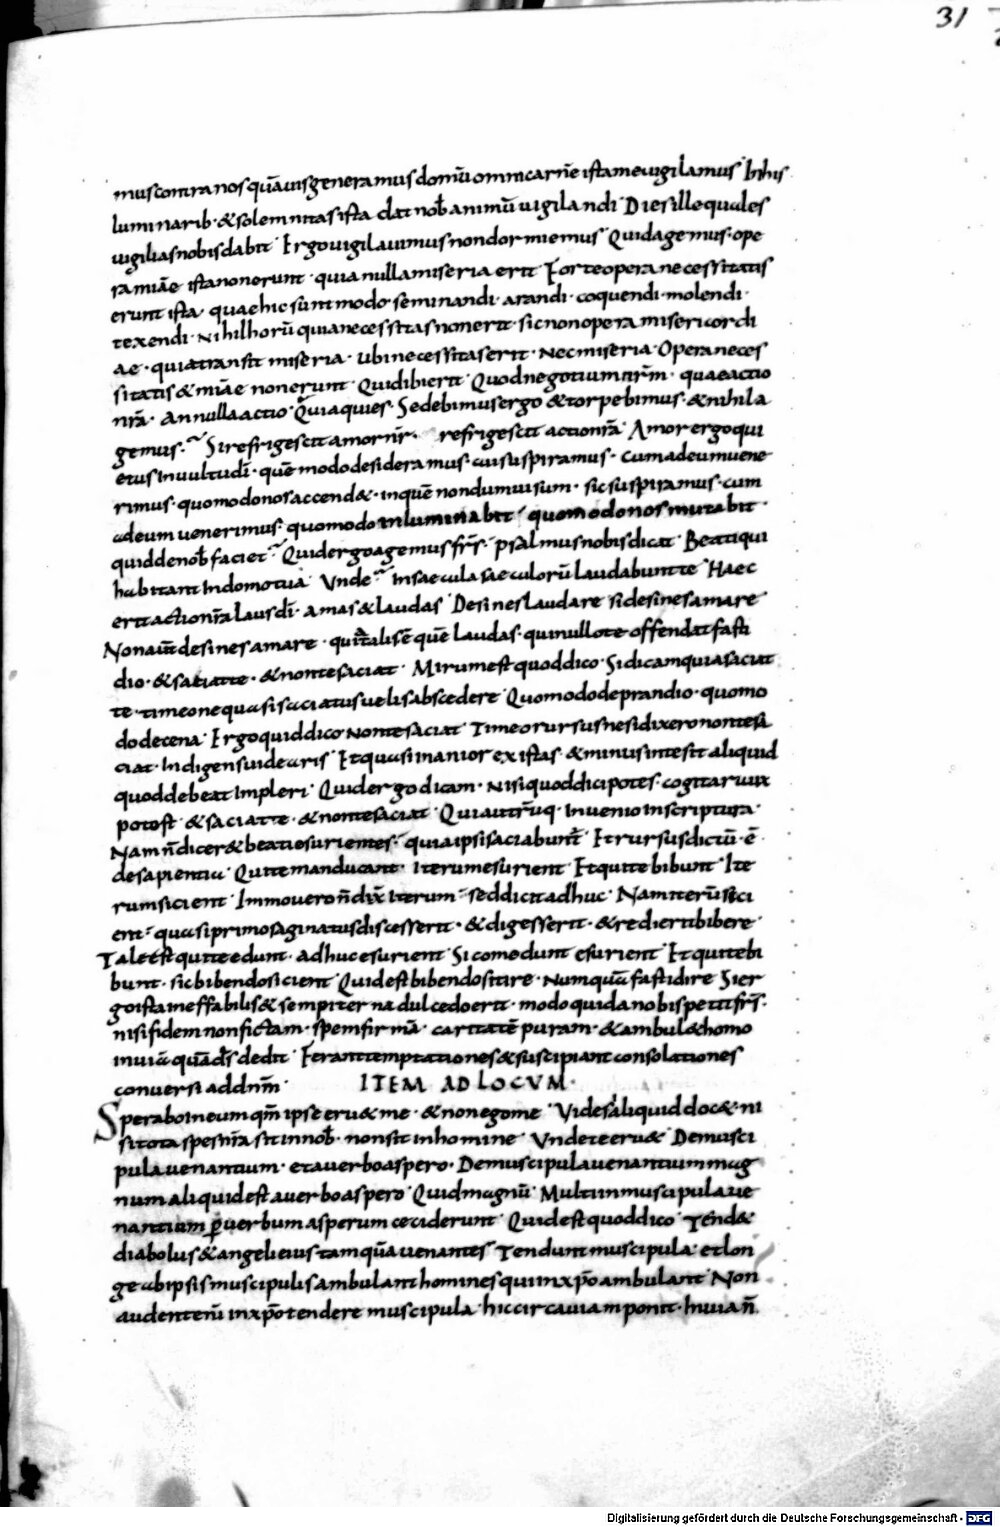 31
mus contra nos quāuis generamus domū omni carnē ista me uigilamus In his
luminarib· & solemnitas ista dat nob̄ animū uigilandi Dies ille quales
uigilias nobis dabit Ergo uigilauimus non dormiemus Quid agemus· ope
ra miāe ista non erunt· quia nulla miseria erit Forte opera necessitatis
erunt ista· quae hic sunt modo· seminandi· arandi· coquendi· molendi·
texendi· Nihil horū quia necessitas non erit· sic non opera misericordi
ae· quia transit miseria· ubi necessitas erit· Nec miseria· Opera neces
sitatis & miāe non erunt Quid ibi erit Quod negotium nr̄m· quae actio
nr̄a· An nulla actio Quia quies· Sedebimus ergo & torpebimus· & nihil a
gemus· Si refrigescit amor nr̄· refrigescit actio nr̄a Amor ergo qui
etus In uultu dī· quē modo desideramus· cui suspiramus· Cum ad eum uene
rimus· quomodo nos accend&· in quē nondum uisum· sic suspiramus· cum
ad eum uenerimus· quomodo inluminabit· quomodo nos mutabit·
quid de nob̄ faciet Quid ergo agemus fr̄s· psalmus nobis dicat Beati qui
habitant In domo tua Vnde In saecula saeculorū laudabunt te Haec
erit actio nr̄a laus dī· amas & laudas Desines laudare si desines amare
Non aūt desines amare· quia talis ē quē laudas· qui nullo te offendat fasti
dio· & satiat te· & non te saciat· Mirum est quod dico· Si dicam quia saciat
te· timeo ne quasi saciatus uelis abscedere Quomodo de prandio· quomo
do de cena Ergo quid dico Non te saciat Timeo rursus ne si dixero non te sa
ciat· Indigens uidearis Et quasi inanior existas· & minus in te sit aliquid
quod debeat Impleri Quid ergo dicam· Nisi quod dici potest· cogitari uix
potest & saciat te· & non te saciat Qui autr̄uq· Inuenio In scriptura·
Nam n̄ dicer& beati esurientes· quia ipsi saciabunt̄ Et rursus dictū· ē
de sapientia Qui te manducant· Iterum esurient Et qui te bibunt Ite
rum sicient Immo uero n̄ dix̄ Iterum· sed dicit adhuc Nam iterū sici
ent· quasi primo saginatus discesserit· & digesserit· & redierit bibere
Tale est qui te edunt· adhuc esurient Si comedunt esurient Et qui te bi
bunt· sic bibendo sicient Quid est bibendo sitire· Numquā fastidire Si er
go ista ineffabilis & sempiterna dulcedo erit· modo quid a nobis petit fr̄s·
nisi fidem non fictam· spem firmā· caritatē puram· & ambul& homo
in uia quā ds̄ dedit Ferant temptationes & suscipiant consolationes
conuersi ad dn̄m ITEM AD LOCVM·
Sperabo in eum qm̄ ipse eru& me· & non ego me Videte aliquid doc&· ni
si tota spes nr̄a sit in nob̄· non sit in homine Vnde te eru& De musci
pula uenantium· et a uerbo aspero· De muscipula uenantium mag
num aliquid est a uerbo aspero Quid magnū Multi in muscipula ue
nantium ꝑ uerbum asperum ceciderunt Quid est quod dico Tend&
diabolus & angeli eius tamquā uenantes Tendunt muscipula· et lon
ge ab ipsis muscipulis ambulant homines qui in xp̄o ambulant Non
audent enī in xp̄o tendere muscipula· hic circa uiam ponit· In uia n̄
Digitalisierung gefördert durch die Deutsche Forschungsgemeinschaft · DFG